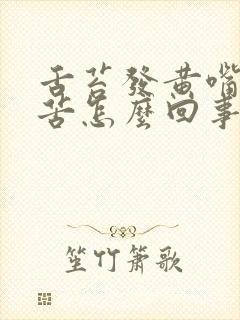 舌苔發黄嘴
苦怎麼回事
笙竹箫歌